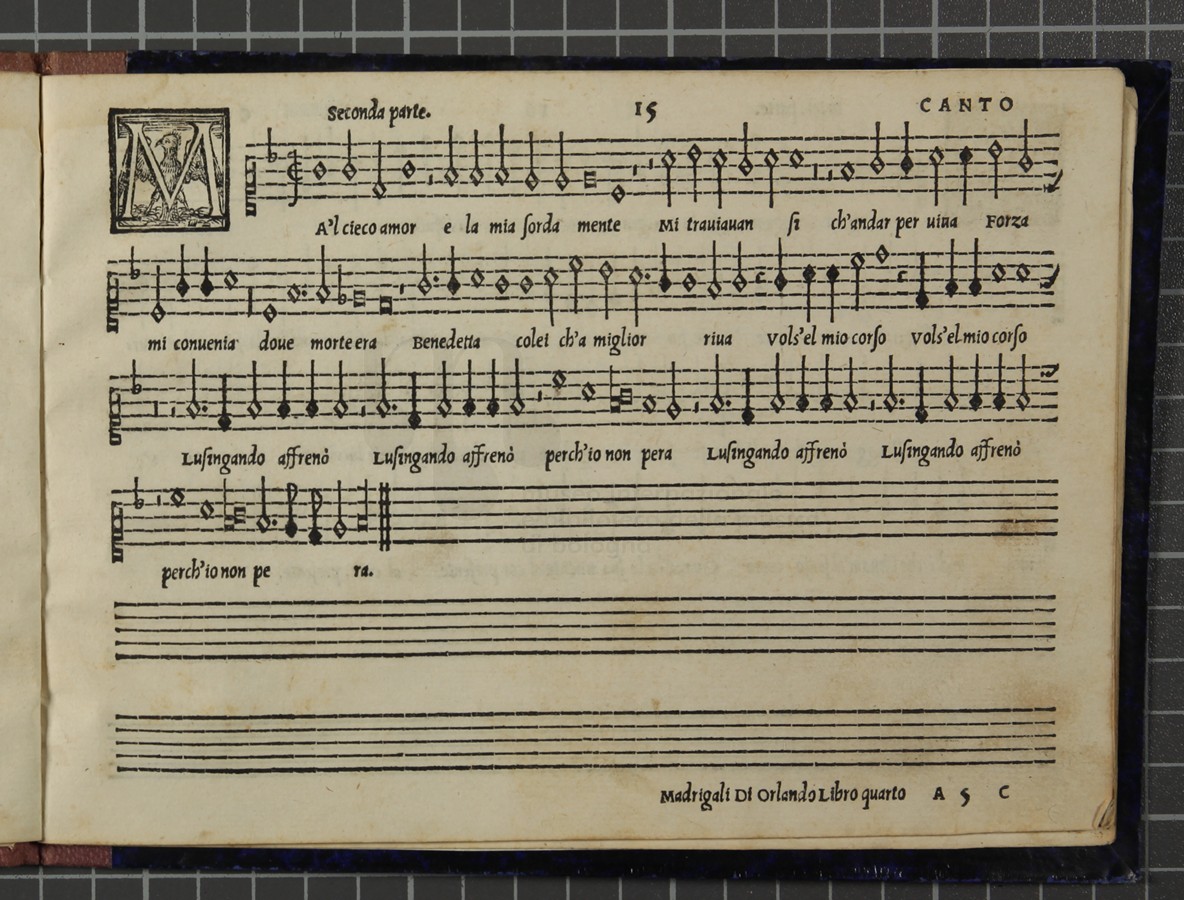 Seconda parte. 15 CANTO
MA'l cieco amor e la mia ſorda mente Mi trauiauan ſi ch'andar per uiua Forza
mi conuenia doue morte era Benedetta colei ch'a miglior riua Vols'el mio corſo vols'el mio corſo
Luſingando affrenò Luſingando affrenò perch'io non pera Luſingando affrenò Luſingando affrenò
perch'io non pe ra.
Madrigali Di Orlando Libro quarto A 5 C